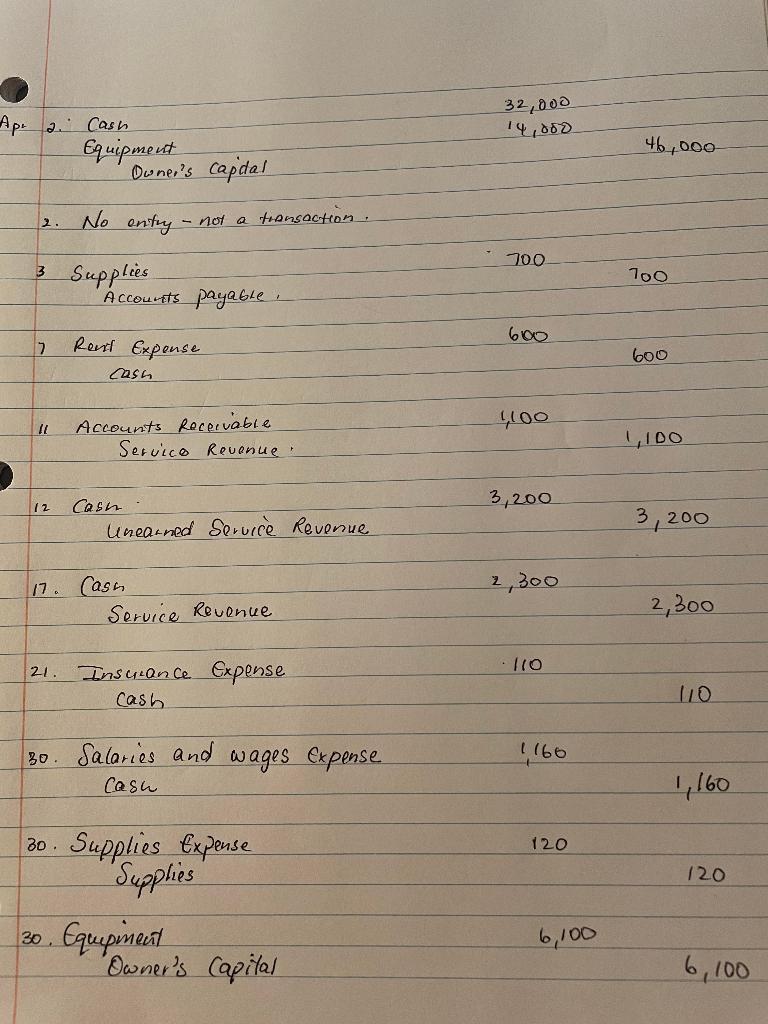 Apr 2. Cash 32,000
Equipment 14,000
Owner's Capital 46,000
2. No entry - not a transaction.
3 Supplies 700
Accounts payable. 700
7 Rent Expense 600
Cash 600
11 Accounts Receivable 1,100
Service Revenue. 1,100
12 Cash 3,200
Unearned Service Revenue 3,200
17. Cash 2,300
Service Revenue 2,300
21. Insurance Expense 110
Cash 110
30. Salaries and wages Expense 1,160
Cash 1,160
30. Supplies Expense 120
Supplies 120
30. Equipment 6,100
Owner's Capital 6,100